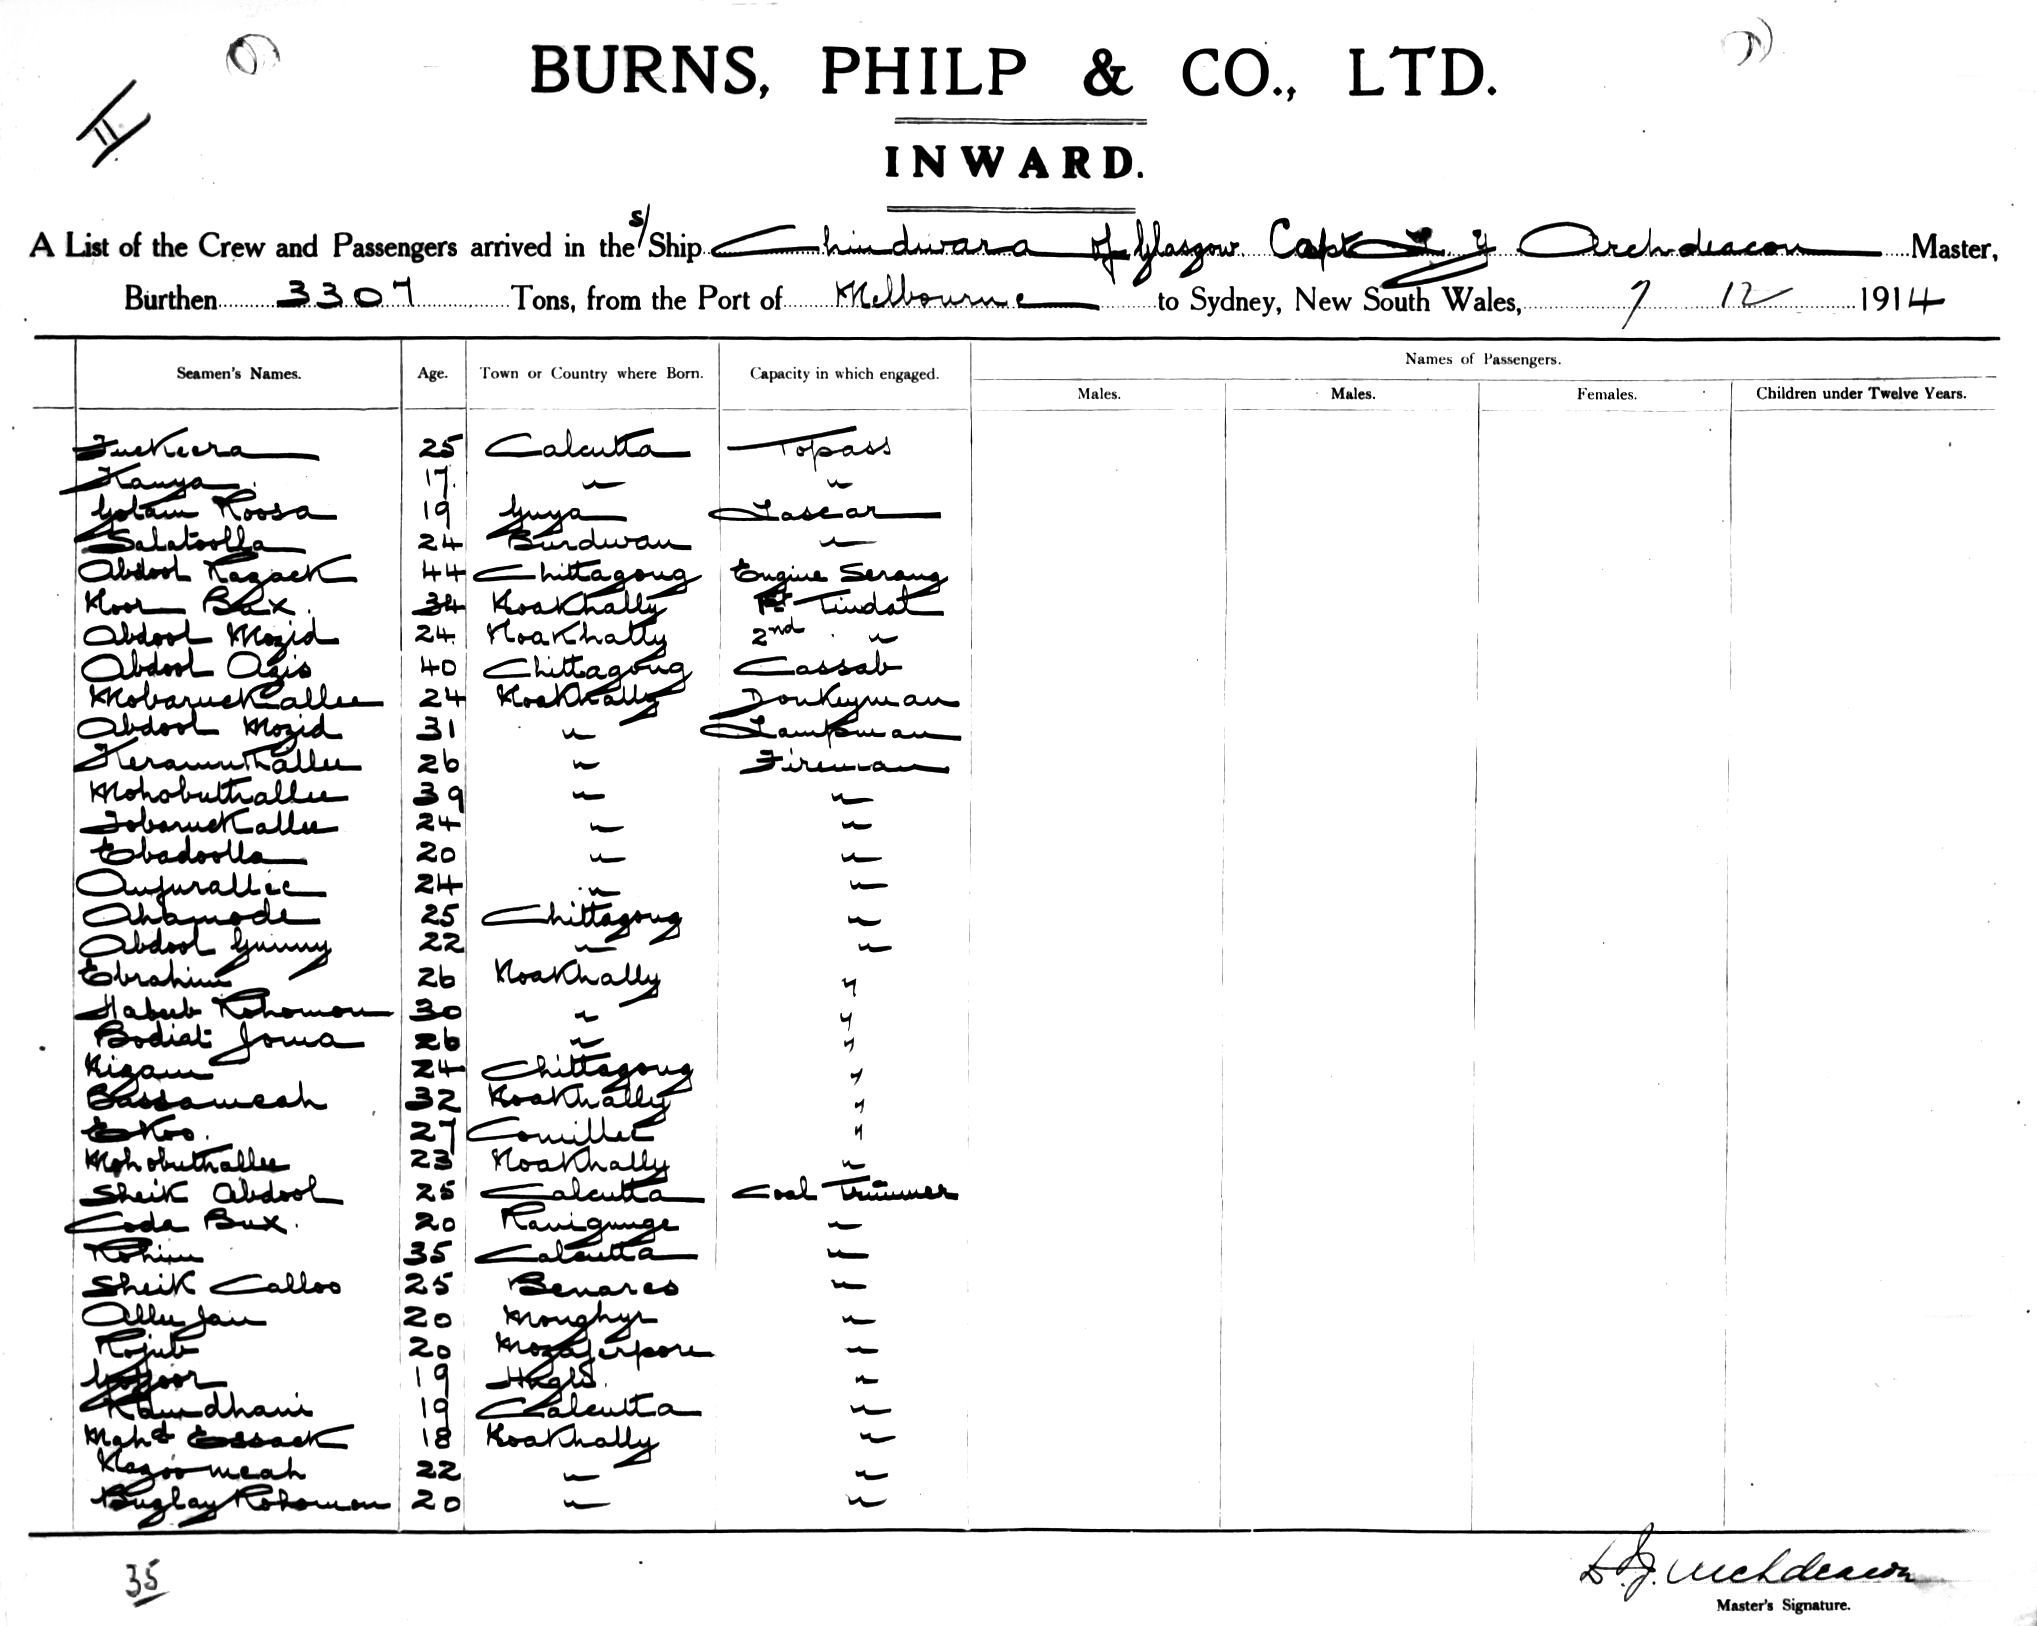 II
BURNS, PHILP & CO., LTD.
INWARD.
A List of the Crew and Passengers arrived in the s/ Ship Chindwara of Glasgow. Capt Archdeacon Master,
Burthen 3307 Tons, from the Port of Melbourne to Sydney, New South Wales, 7 12 1914
Names of Passengers.
Seamen's Names. Age. Town or Country where Born. Capacity in which engaged.
Males. Males. Females. Children under Twelve Years.
Fuckeera 25 Calcutta Topass
Kanya. 17. " "
Golam Roosa 19 Guya Lascar
Salatoolla 24 Burdwan "
Abdool Razack 44 Chittagong Engine Serang
Noor Bux. 34 Noakhally 1st Tindal
Abdool Mozid 24. Noakhally 2nd "
Abdool Azis 40 Chittagong Cassab
Mobaruckallee 24 Noakhally Donkeyman
Abdool Mozid 31 " Lampman
Keramuthallee 26 " Fireman
Mohobuthallee 39 " "
Tobaruckallee 24 " "
Ebadoolla 20 " "
Aujurallee 24 " "
Ahamode 25 Chittagong "
Abdool Gunny 22 " "
Ebrahim 26 Noakhally "
Habeeb Rohomon 30 " "
Bodiat Joma 26 " "
Nizam 24 Chittagong "
Bassameah 32 Noakhally "
Ekoo. 27 Comillee "
Mohobuthallee 23 Noakhally "
Sheik Abdool 25 Calcutta Coal Trimmer
Coda Bux. 20 Ranigunge "
Rohim 35 Calcutta "
Sheik Calloo 25 Benares "
Allee Jan 20 Monghyr "
Rojub 20 Mozaferpore "
Goffoor 19 Hugli. "
Ramdhani 19 Calcutta "
Mahd Essack 18 Noakhally "
Nazoomeah 22 " "
Buglay Rohomon 20 " "
35
Archdeacon
Master's Signature.